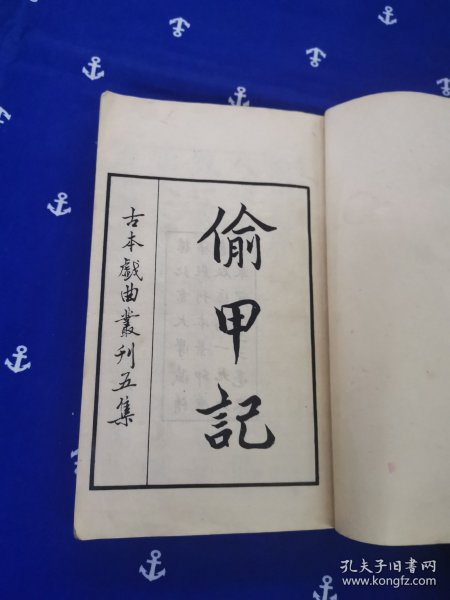 偷甲記
古本戲曲叢刊五集
孔夫子旧书网
www.kongfz.com